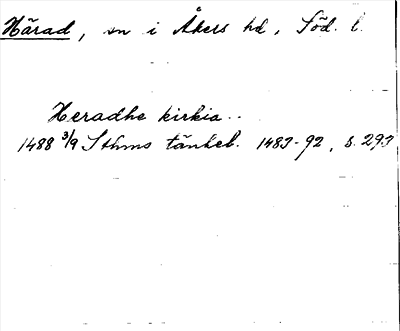 Härad, sn i Åkers hd, Söd. l.
Heradhe kirkia..
1488 3/9 Sthms tänkeb. 1483-92, s. 293